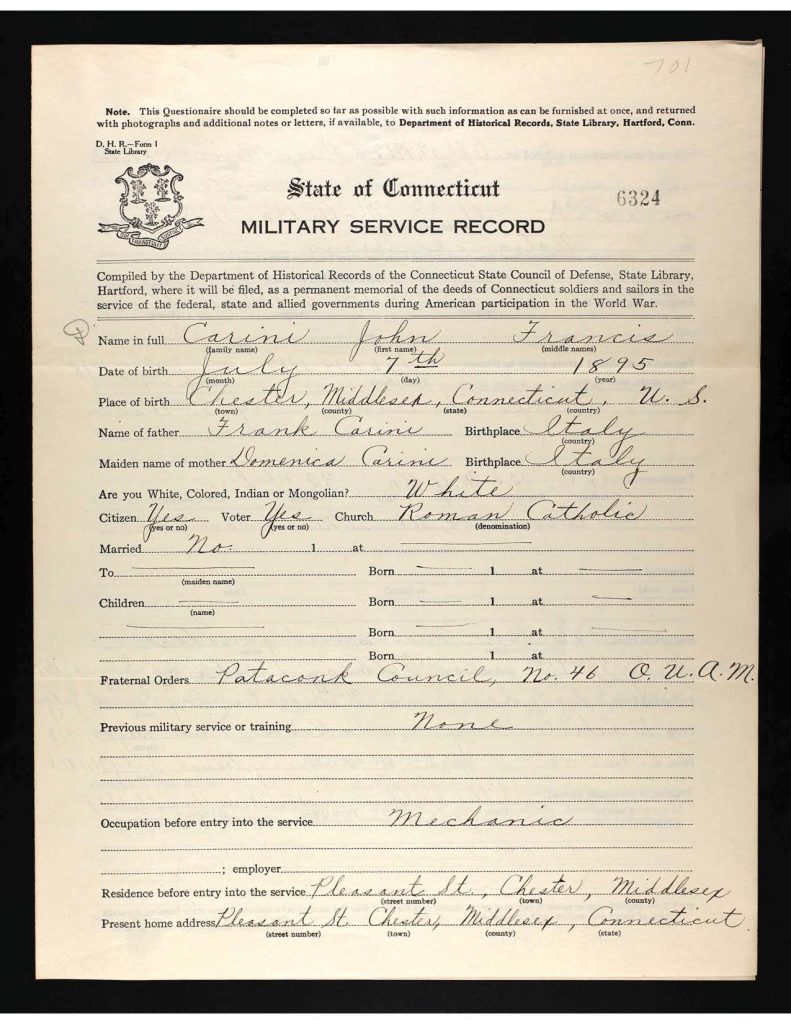 701
Note. This Questionaire should be completed so far as possible with such information as can be furnished at once, and returned
with photographs and additional notes or letters, if available, to Department of Historical Records, State Library, Hartford, Conn.
D. H. R.—Form 1
State Library
State of Connecticut
6324
MILITARY SERVICE RECORD
Compiled by the Department of Historical Records of the Connecticut State Council of Defense, State Library,
Hartford, where it will be filed, as a permanent memorial of the deeds of Connecticut soldiers and sailors in the
service of the federal, state and allied governments during American participation in the World War.
Name in full Carini John Francis
(family name) (first name) (middle names)
Date of birth July 7th 1895
(month) (day) (year)
Place of birth Chester, Middlesex, Connecticut, U. S.
(town) (county) (state) (country)
Name of father Frank Carini Birthplace Italy
(country)
Maiden name of mother Domenica Carini Birthplace Italy
(country)
Are you White, Colored, Indian or Mongolian? White
Citizen Yes Voter Yes Church Roman Catholic
(yes or no) (yes or no) (denomination)
Married No. 1 at
To Born 1 at
(maiden name)
Children Born 1 at
(name)
Born 1 at
Born 1 at
Fraternal Orders Pataconk Council, No. 46 O. U. A. M.
Previous military service or training None
Occupation before entry into the service Mechanic
; employer
Residence before entry into the service Pleasant St., Chester, Middlesex
(street number) (town) (county)
Present home address Pleasant St. Chester, Middlesex, Connecticut.
(street number) (town) (county) (state)